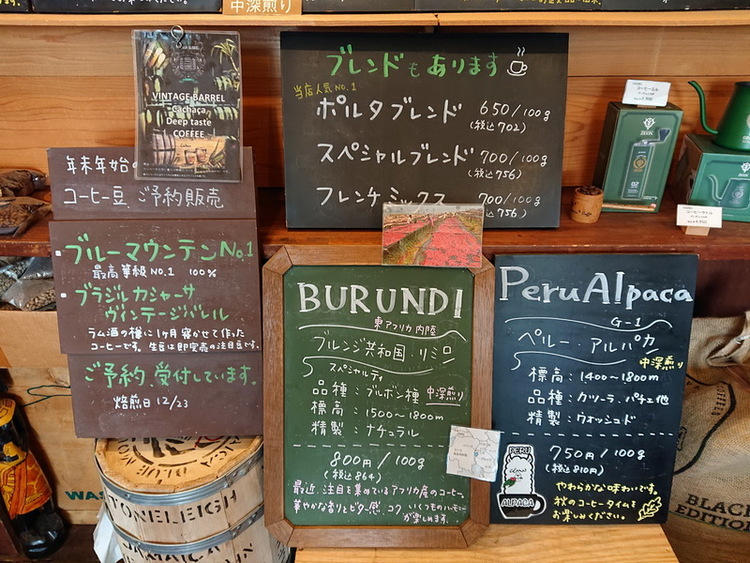 中深煎り
VINTAGE BARREL
Cachaça
Deep taste
COFFEE
年末年始の
コーヒー豆 ご予約販売
ブルーマウンテンNo.1
最高等級NO.1 100%
ブラジルカシャーサ
ヴィンテージバレル
ラム酒の樽に1ヶ月寝かせて作った
コーヒーです。生豆は即完売の注目豆です。
ご予約、受付しています。
焙煎日 12/23
ブレンドもあります
当店人気NO.1
ポルタブレンド 650/100g
(税込702)
スペシャルブレンド 700/100g
(税込756)
フレンチミックス 700/100g
税込756)
BURUNDI
東アフリカ内陸
ブルンジ共和国・リミロ
スペシャルティ
品種:ブルボン種 中深煎り
標高:1500〜1800m
精製:ナチュラル
800円/100g
(税込864)
最近、注目を集めているアフリカ産のコーヒー。
華やかな香りとビター感、コク、いくつものハーモニー
が楽しめます。
Peru Alpaca
G-1
ペルー・アルパカ
中深煎り
標高:1400〜1800m
品種:カツーラ・パチェ他
精製:ウォッシュド
750円/100g
(税込810円)
PERU
ALPACA
やわらかな味わいです。
秋のコーヒータイムを
お楽しみください。
コーヒーミル
STONELEIGH
JAMAICA
BLACK
EDITION